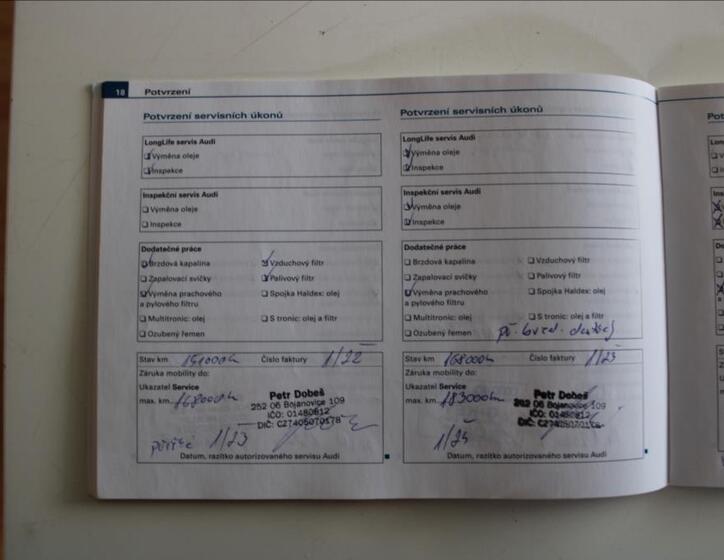 18 Potvrzení
Potvrzení servisních úkonů
LongLife servis Audi
Výměna oleje
Inspekce
Inspekční servis Audi
Výměna oleje
Inspekce
Dodatečné práce
Brzdová kapalina Vzduchový filtr
Zapalovací svíčky Palivový filtr
Výměna prachového Spojka Haldex: olej
a pylového filtru
Multitronic: olej S tronic: olej a filtr
Ozubený řemen
Stav km 151000km Číslo faktury 1/22
Záruka mobility do:
Ukazatel Service
max. km 168000km
Petr Dobeš
252 06 Bojanovice 109
IČO: 01480812
DIČ: CZ7405070178
příště 1/23
Datum, razítko autorizovaného servisu Audi
Potvrzení servisních úkonů
LongLife servis Audi
Výměna oleje
Inspekce
Inspekční servis Audi
Výměna oleje
Inspekce
Dodatečné práce
Brzdová kapalina Vzduchový filtr
Zapalovací svíčky Palivový filtr
Výměna prachového Spojka Haldex: olej
a pylového filtru
Multitronic: olej S tronic: olej a filtr
Ozubený řemen
Stav km 168000km Číslo faktury 1/23
Záruka mobility do:
Ukazatel Service
max. km 183000km
Petr Dobeš
252 06 Bojanovice 109
IČO: 01480812
DIČ: CZ7405070178
1/24
Datum, razítko autorizovaného servisu Audi